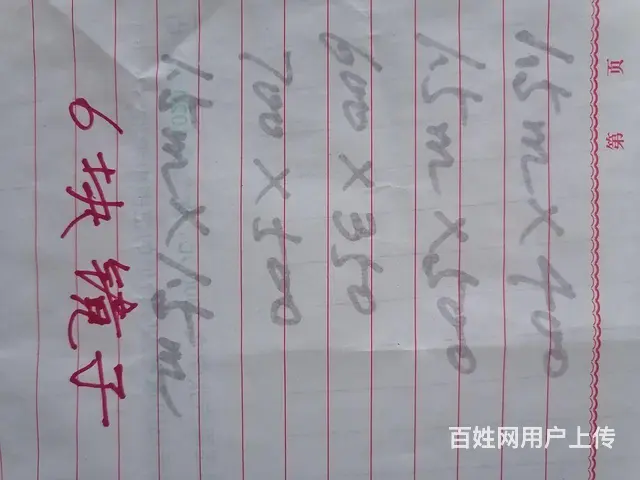 第 页
1.5m×400
1.5m×500
600×350
700×500
1.5m×1.5m
6块镜子
百姓网用户上传